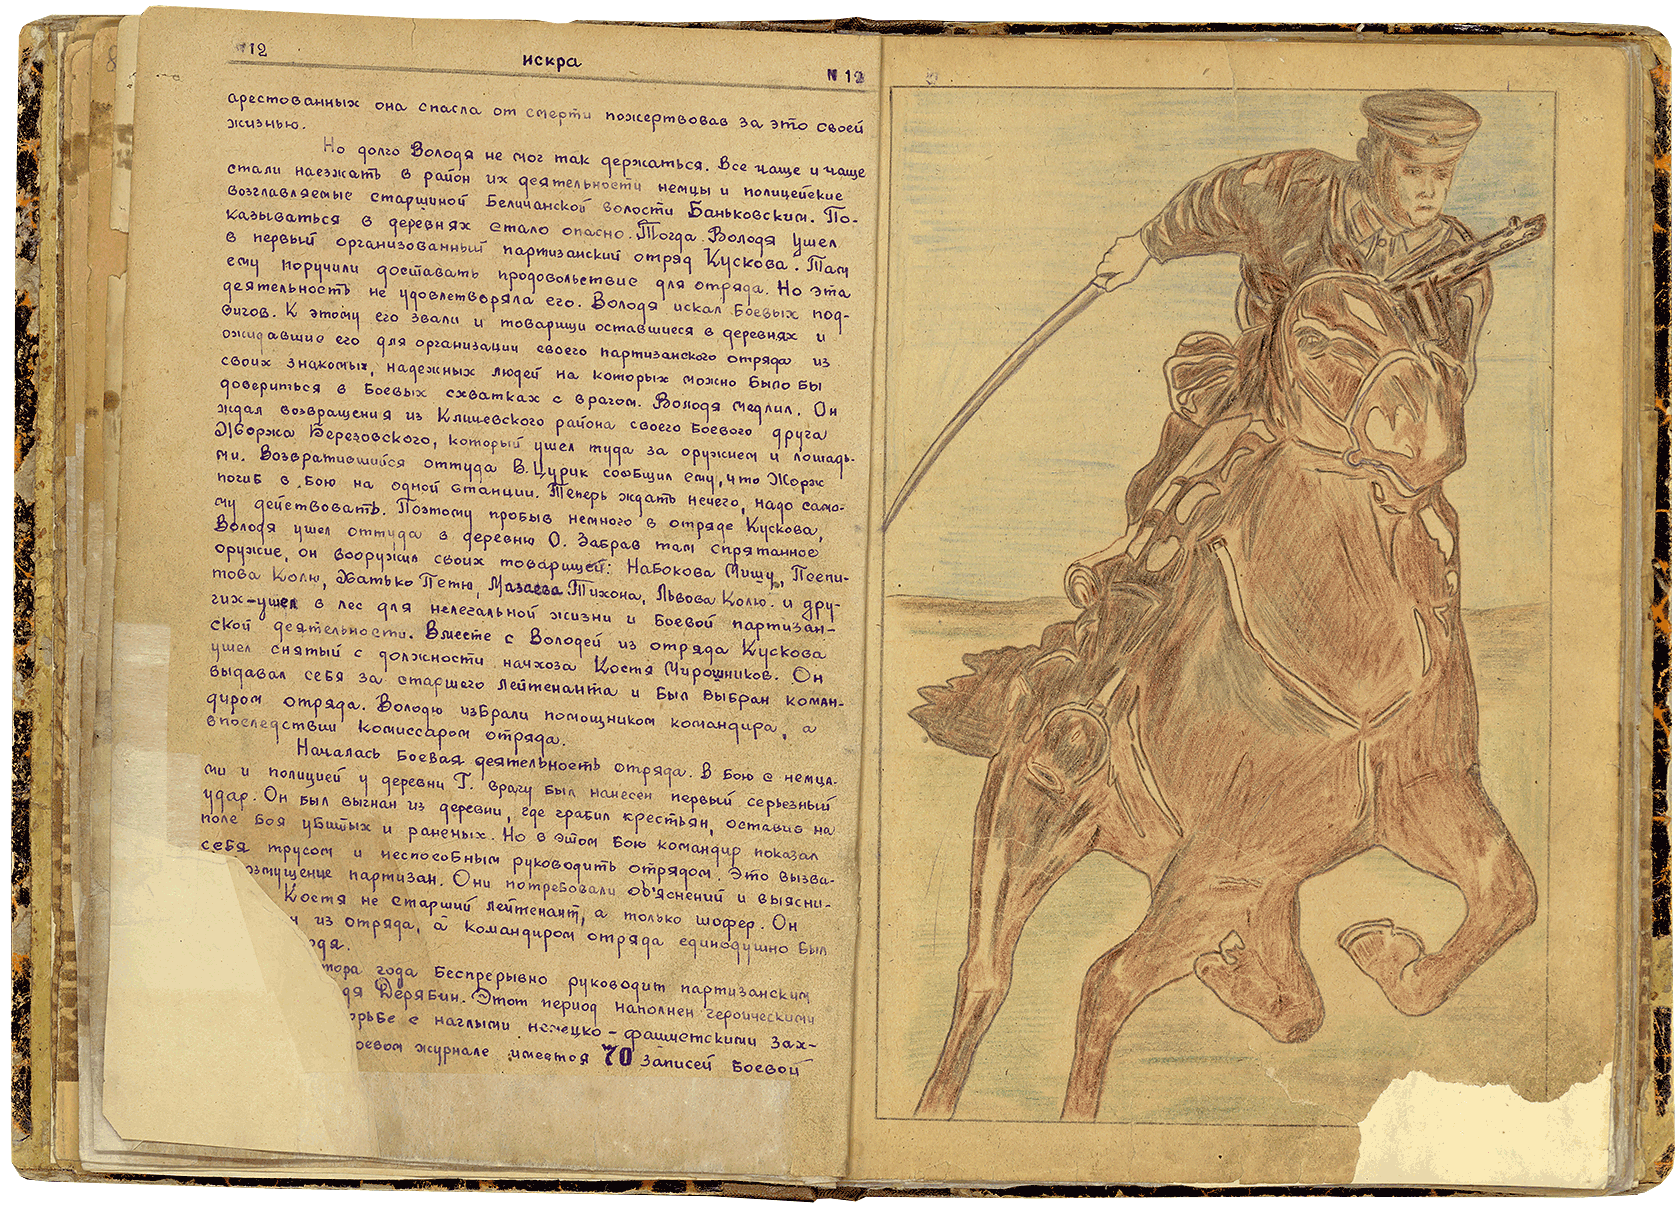 №12
искра
№ 12
арестованных она спасла от смерти пожертвовав за это своей
жизнью.
Но долго Володя не мог так держаться. Все чаще и чаще
стали наезжать в район их деятельности немцы и полицейские
возглавляемые старшиной Беличанской волости Баньковским. По-
казываться в деревнях стало опасно. Тогда Володя ушел
в первый организованный партизанский отряд Кускова. Там
ему поручили доставать продовольствие для отряда. Но эта
деятельность не удовлетворяла его. Володя искал боевых под-
вигов. К этому его звали и товарищи оставшиеся в деревнях и
ожидавшие его для организации своего партизанского отряда из
своих знакомых, надежных людей на которых можно было бы
довериться в боевых схватках с врагом. Володя медлил. Он
ждал возвращения из Кличевского района своего боевого друга
Жоржа Березовского, который ушел туда за оружием и лошадь-
ми. Возвратившийся оттуда В. Цурик сообщил ему, что Жорж
погиб в бою на одной станции. Теперь ждать нечего, надо само-
му действовать. Поэтому пробыв немного в отряде Кускова,
Володя ушел оттуда в деревню О. Забрав там спрятанное
оружие, он вооружил своих товарищей: Набокова Мишу, Поепи-
това Колю, Хатько Петю, Мазаева Тихона, Львова Колю. и дру-
гих-ушел в лес для нелегальной жизни и боевой партизан-
ской деятельности. Вместе с Володей из отряда Кускова
ушел снятый с должности начхоза Костя Мирошников. Он
выдавал себя за старшего лейтенанта и был выбран коман-
диром отряда. Володю избрали помощником командира, а
впоследствии комиссаром отряда.
Началась боевая деятельность отряда. В бою с немца-
ми и полицией у деревни Г. врагу был нанесен первый серьезный
удар. Он был выгнан из деревни, где грабил крестьян, оставив на
поле боя убитых и раненых. Но в этом бою командир показал
себя трусом и неспособным руководить отрядом. Это вызва-
озмущение партизан. Они потребовали об'яснений и выясни-
Костя не старший лейтенант, а только шофер. Он
н из отряда, а командиром отряда единодушно был
одя.
тора года беспрерывно руководит партизанским
дя Дерябин. Этот период наполнен героическими
орьбе с наглыми немецко-фашистскими зах-
оевом журнале имеется 70 записей боевой